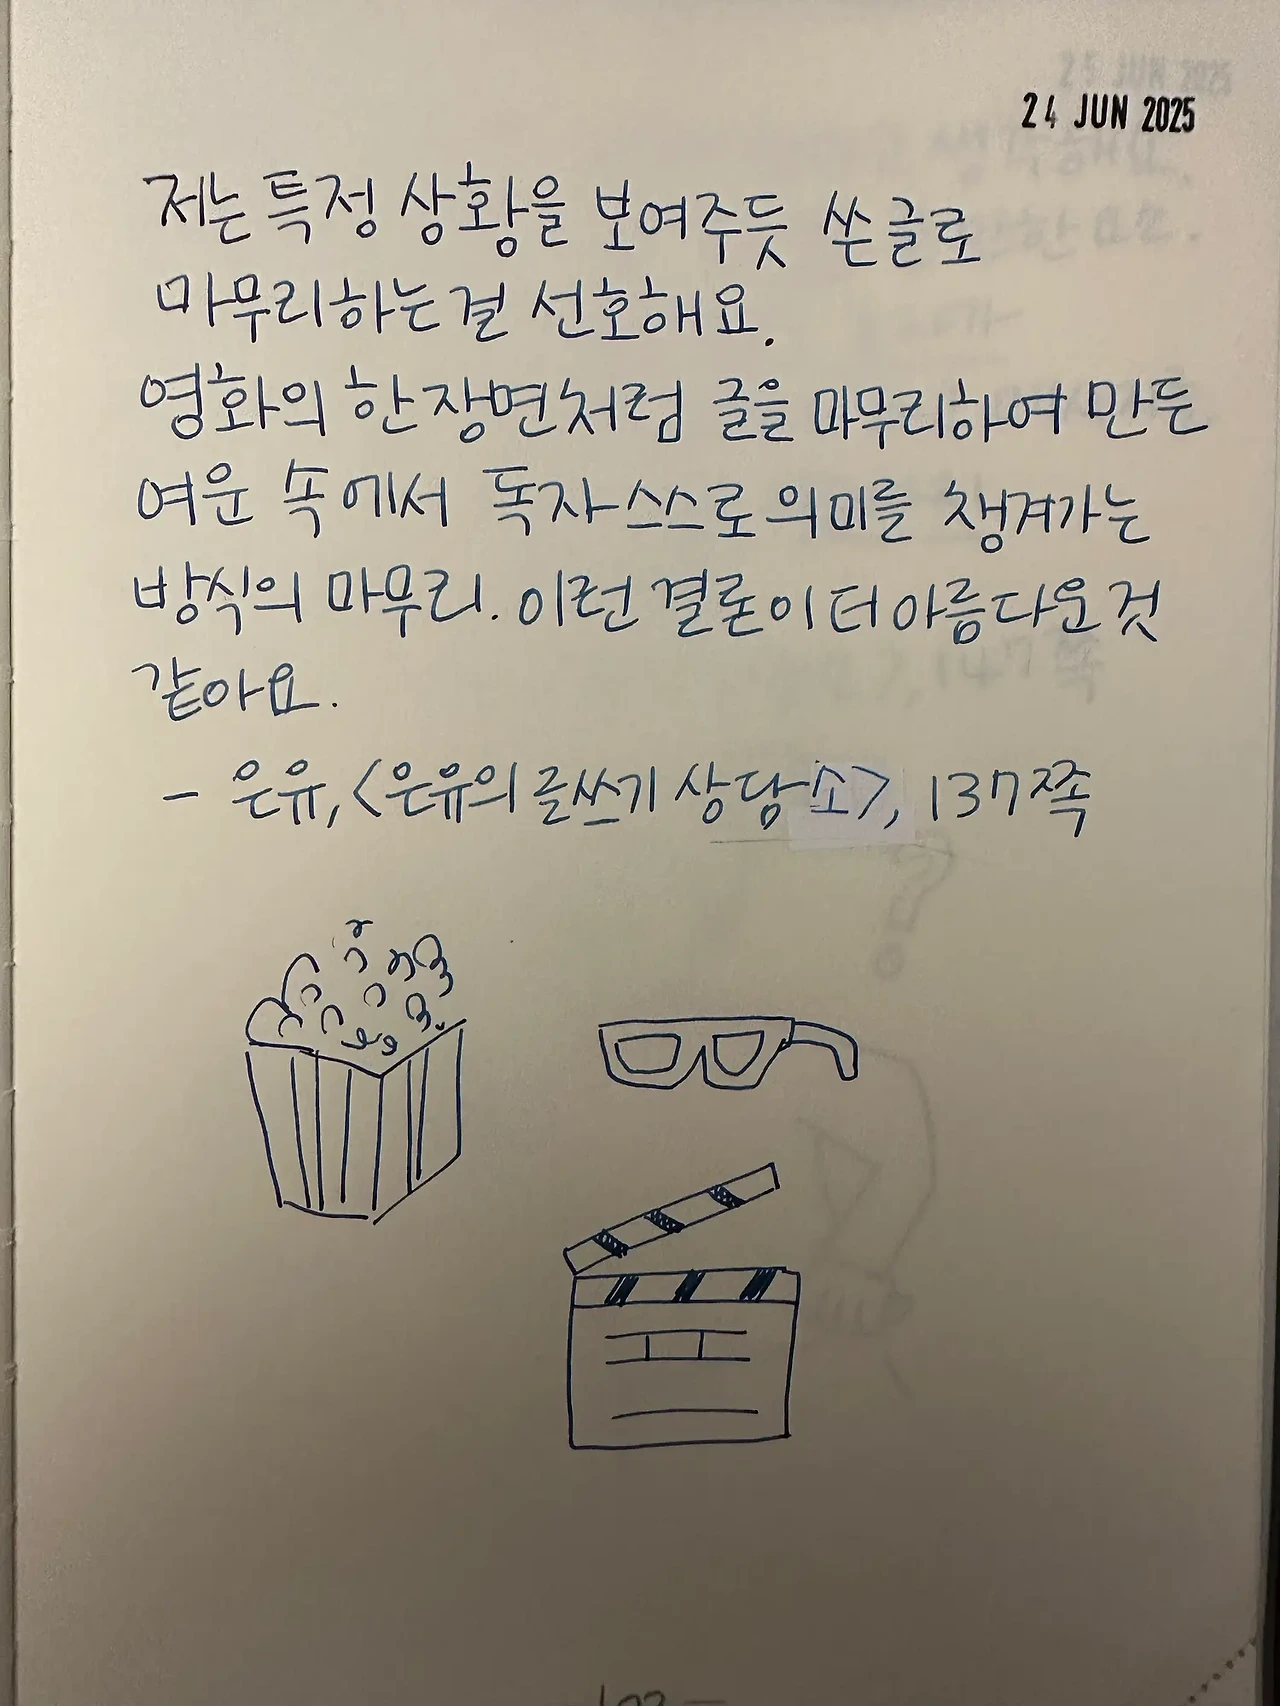 24 JUN 2025
저는 특정 상황을 보여주듯 쓴 글로
마무리하는 걸 선호해요.
영화의 한 장면처럼 글을 마무리하여 만든
여운 속에서 독자 스스로 의미를 챙겨가는
방식의 마무리. 이런 결론이 더 아름다운 것
같아요.
- 은유, <은유의 글쓰기 상담소>, 137쪽